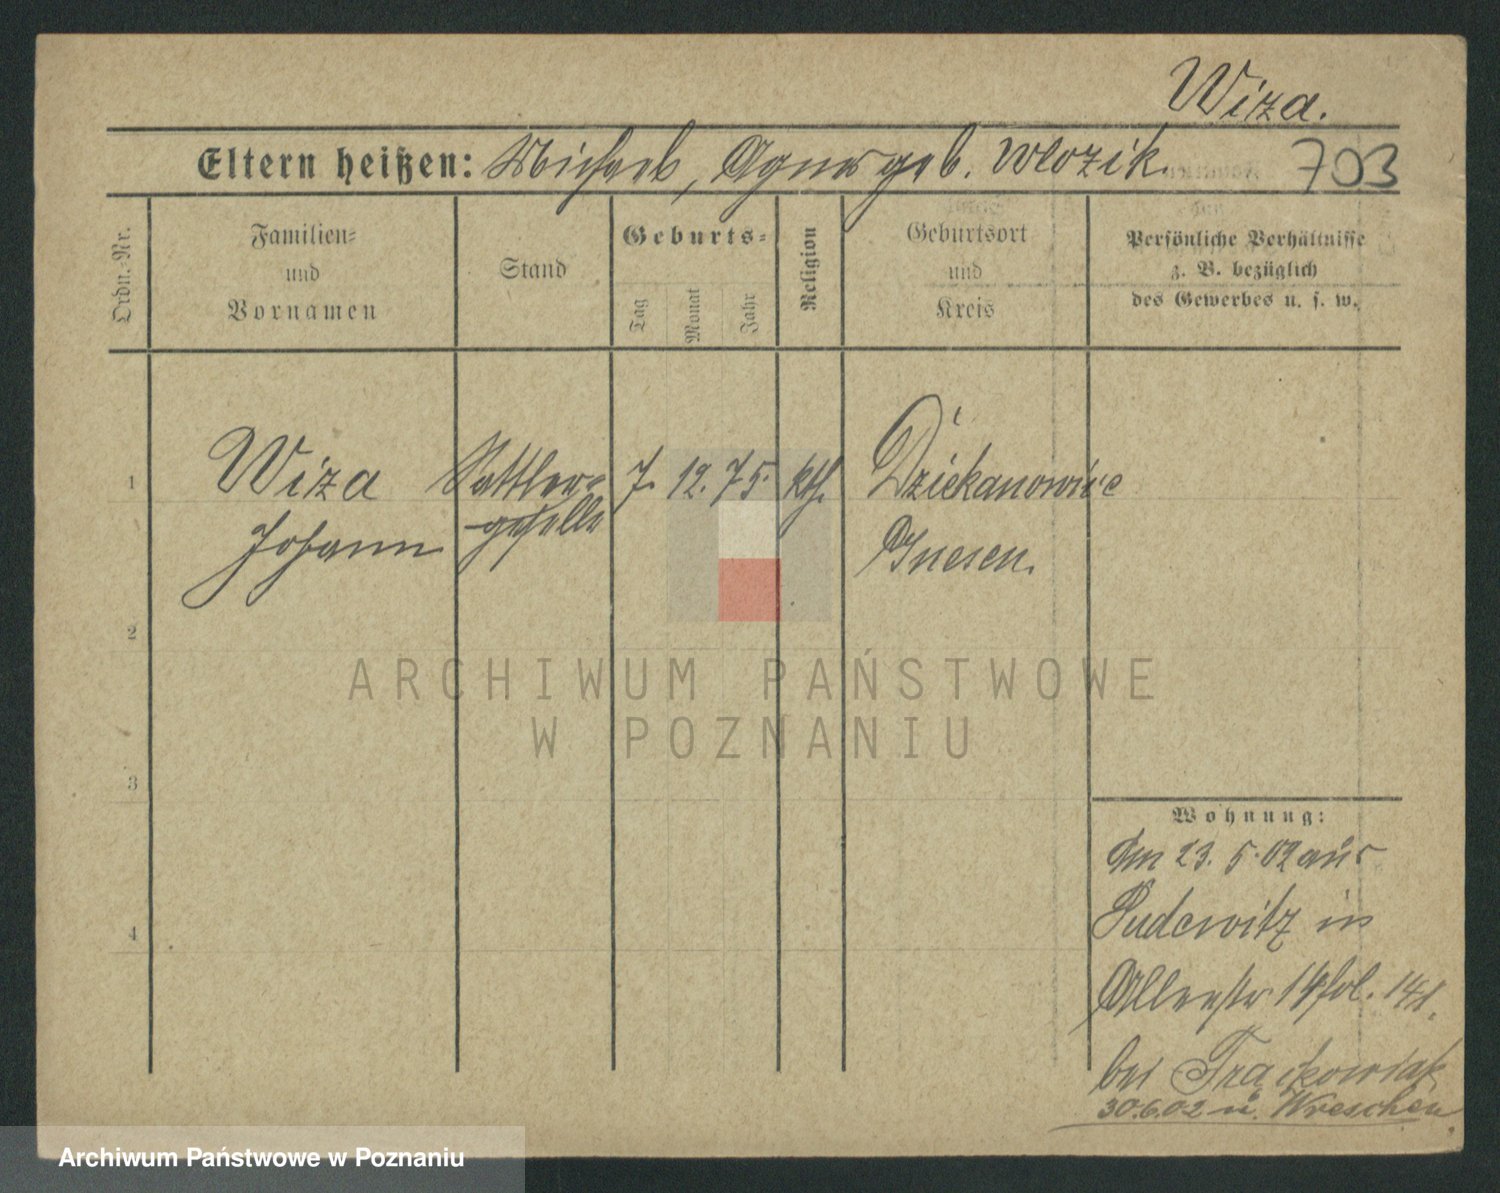 Wiza.
Eltern heißen: Michael, Agnes geb. Wlozik. 703
Ordn.-Nr.
Familien-
und
Vornamen
Stand
Geburts-
Tag
Monat
Jahr
Religion
Geburtsort
und
Kreis
Persönliche Verhältnisse
z. B. bezüglich
des Gewerbes u. s. w.
1 Wiza Sattler- 7. 12. 75. kth. Dziekanowice
Johann geselle Gnesen.
2
3
4
ARCHIWUM PAŃSTWOWE
W POZNANIU
Wohnung:
Am 23. 5. 02 aus
Pudewitz in
fol. 141.
bei
30.6.02 n. Wreschen
Archiwum Państwowe w Poznaniu